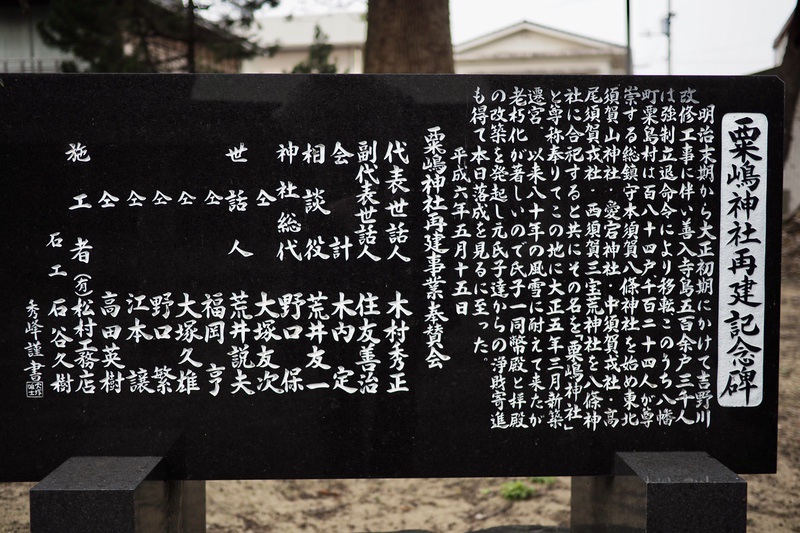 粟嶋神社再建記念碑
明治末期から大正初期にかけて吉野川
改修工事に伴い善入寺島五百余戸三千人
は強制立退命令により移転このうち八幡
町粟島村は百八十四戸千百二十四人が尊
崇する総鎮守本須賀八條神社を始め東北
須賀山神社・愛宕神社・中須賀戎社・高
尾須賀戎社・西須賀三宝荒神社を八條神
社に合祀すると共にその名を「粟嶋神社」
と尊称奉りてこの地に大正五年三月新築
遷宮、以来八十年の風雪に耐えて来たが
老朽化が著しいので氏子一同幣殿と拝殿
の改築を発起し元氏子達からの浄財寄進
も得て本日落成を見るに至った。
平成六年五月十五日
粟嶋神社再建事業奉賛会
代表世話人 木村秀正
副代表世話人 住友善治
会計 木内定
相談役 荒井友一
神社総代 野口保
仝 大塚友次
世話人 荒井説夫
仝 福岡亨
仝 大塚久雄
仝 野口繁
仝 江本譲
仝 高田英樹
施工者 (有)松村工務店
石工 石谷久樹
秀峰謹書